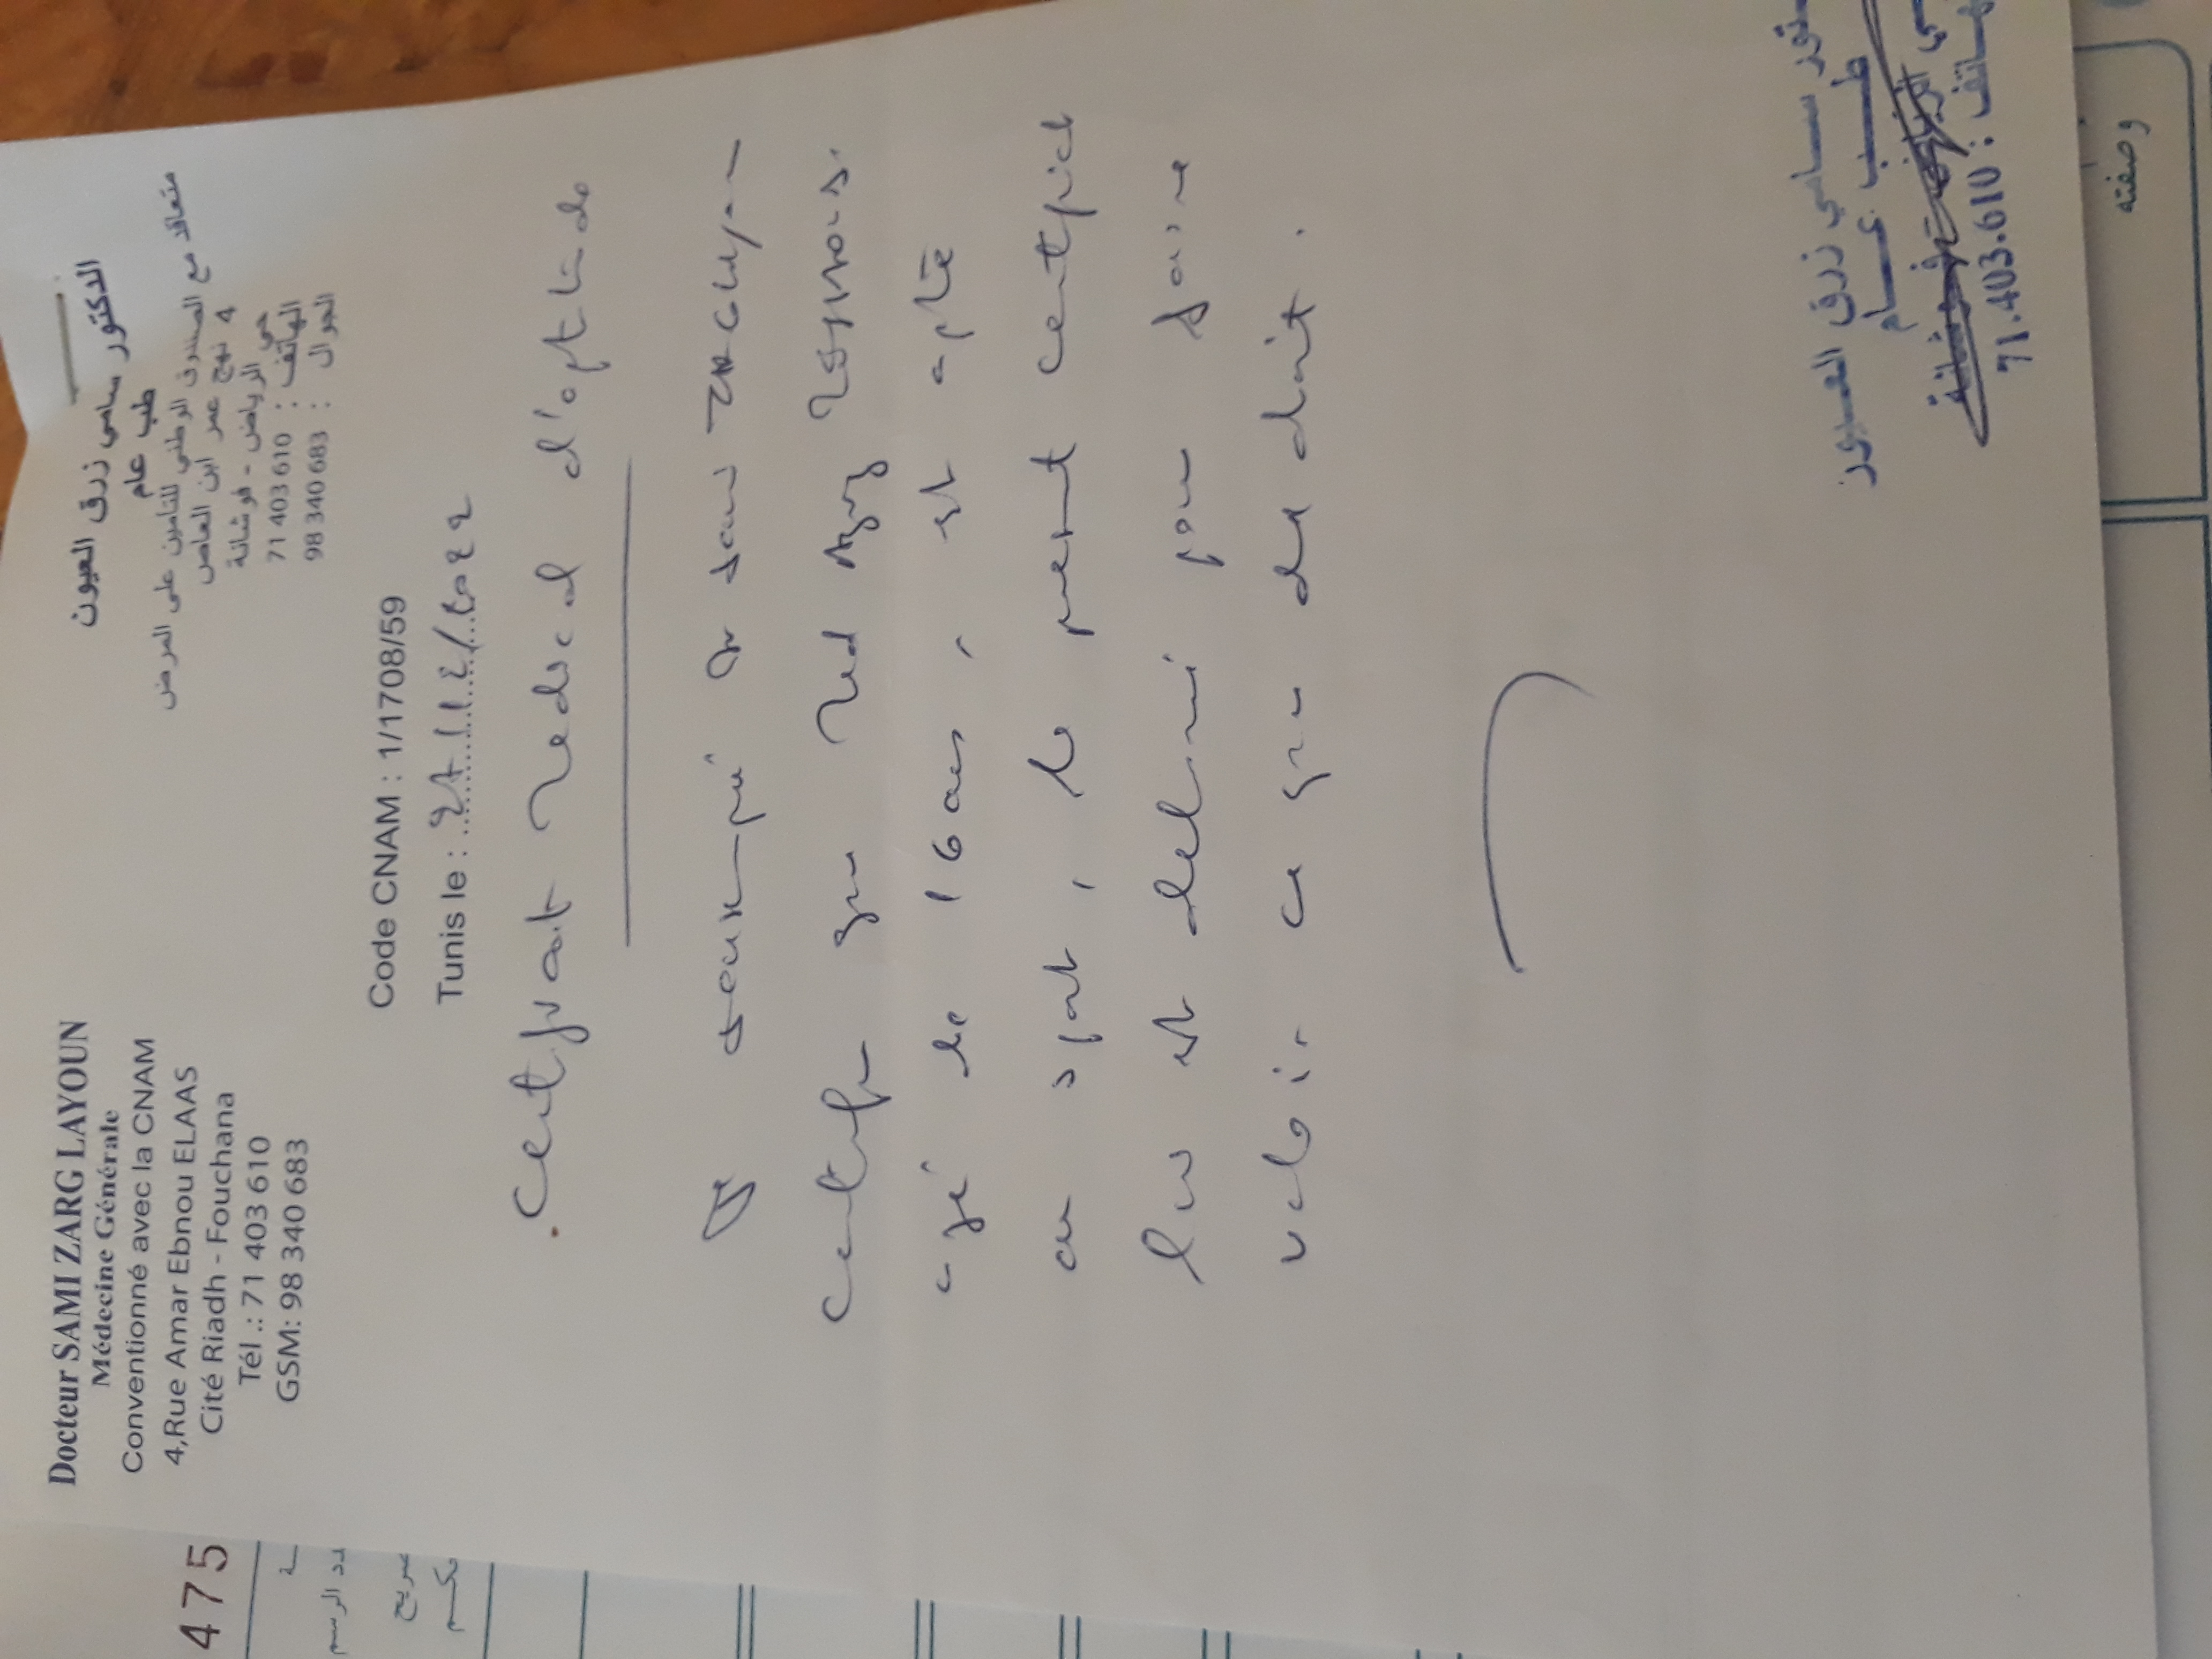 Docteur SAMI ZARG LAYOUN
Médecine Générale
Conventionné avec la CNAM
4,Rue Amar Ebnou ELAAS
Cité Riadh - Fouchana
Tél .: 71 403 610
GSM: 98 340 683
الدكتور سامي زرق العيون
طب عام
متعاقد مع الصندوق الوطني للتأمين على المرض
4 نهج عمر ابن العاص
حي الرياض - فوشانة
الهاتف : 71 403 610
الجوال : 98 340 683
Code CNAM : 1/1708/59
Tunis le :
Certificat Medical d'aptitude
Je soussigné Dr
certifie que Med
agé de 16 ans, est apte
au sport, le present certificat
lui est delivré pour faire
valoir ce que de droit.
سامي زرق العيون
طب عام
71.403.610 :
475
وصفته